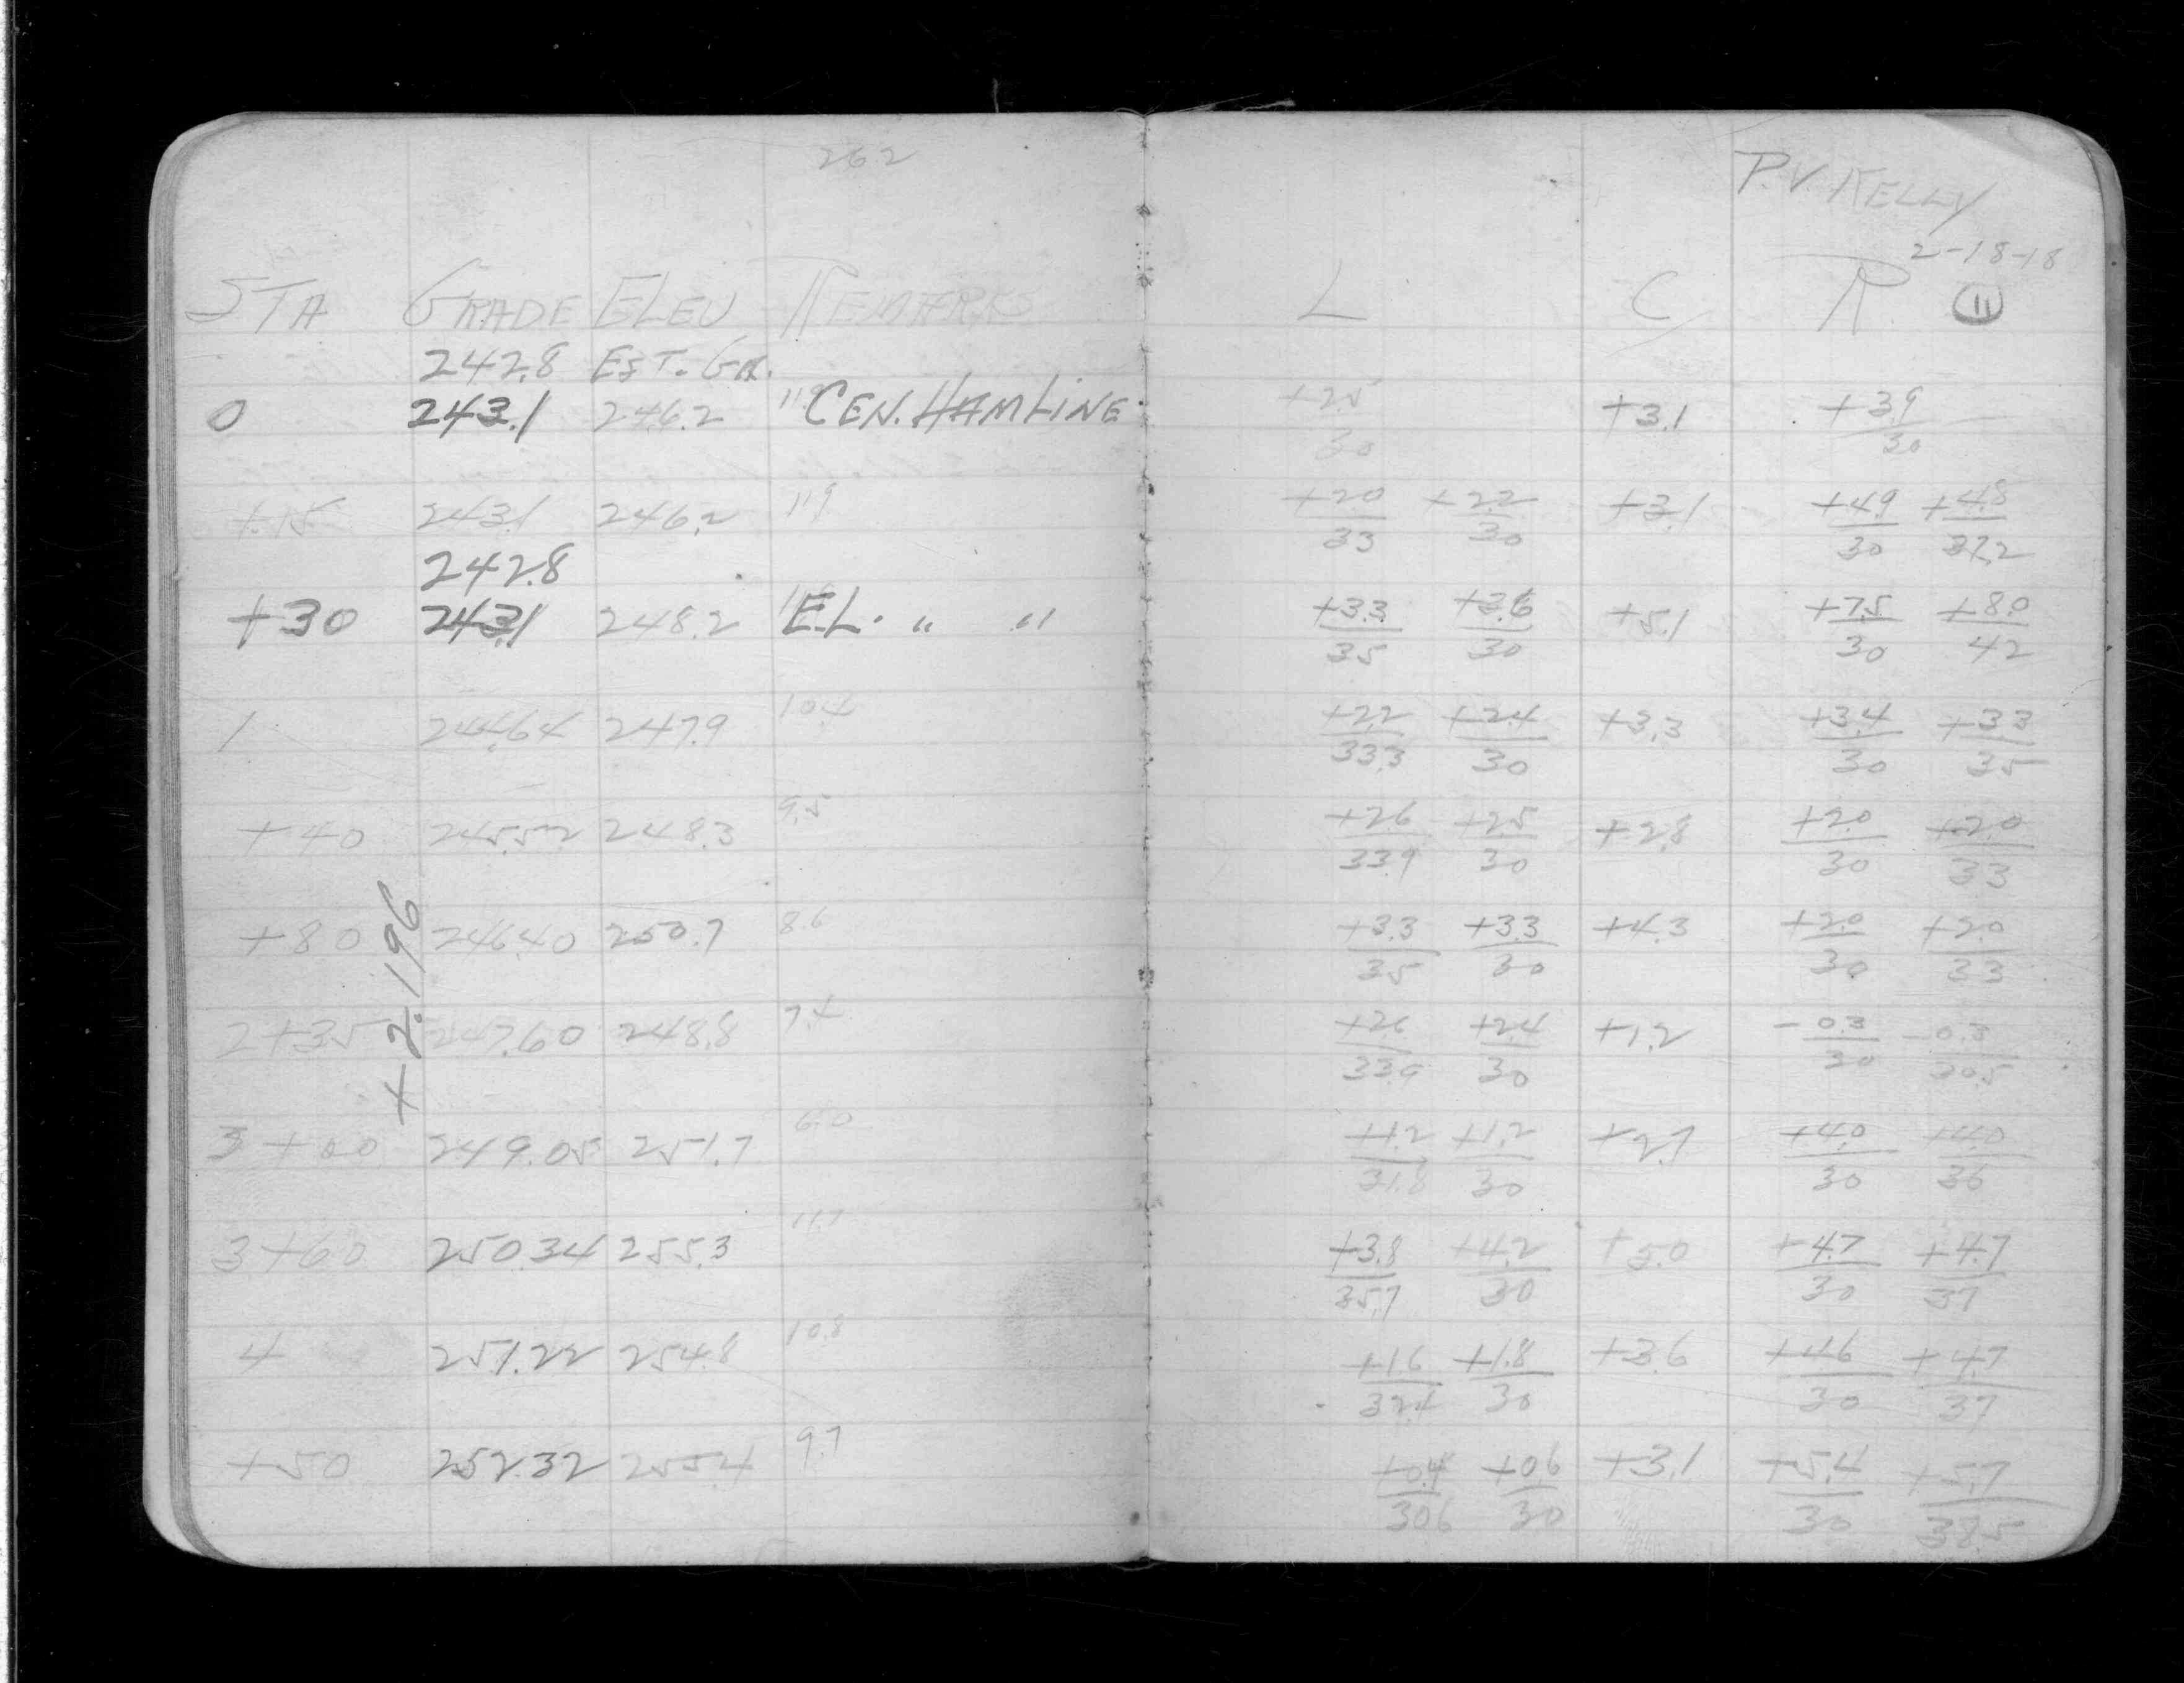 262
STA GRADE ELEV REMARKS
242.8 EST. GR.
0 243.1 246.2 11.9 CEN. HAMLINE
+15 243.1 246.2 11.9
242.8
+30 243.1 248.2 E.L. " "
1 244.64 247.9 10.4
+40 245.52 248.3 9.5
+80 246.40 250.7 8.6
+2.196
2+35 247.60 248.8 7.4
3+00 249.05 251.7 6.0
3+60 250.34 255.3 11.7
4 251.22 254.8 10.8
+50 252.32 255.4 9.7
P.V. KELLY
2-18-18
L C R 11
+2.5 +3.1 +3.9
30 30
+2.0 +2.2 +3.1 +4.9 +4.8
33 30 30 37.2
+3.3 +3.6 +5.1 +7.5 +8.0
35 30 30 42
+2.2 +2.4 +3.3 +3.4 +3.3
33.3 30 30 35
+2.6 +2.5 +2.8 +2.0 +2.0
33.9 30 30 33
+3.3 +3.3 +4.3 +2.0 +2.0
35 30 30 33
+2.6 +2.4 +1.2 -0.3 -0.3
33.9 30 30 30.5
+1.2 +1.2 +2.7 +4.0 +4.0
31.8 30 30 36
+3.8 +4.2 +5.0 +4.7 +4.7
35.7 30 30 37
+1.6 +1.8 +3.6 +4.6 +4.7
32.4 30 30 37
+0.4 +0.6 +3.1 +5.4 +5.7
30.6 30 30 38.5